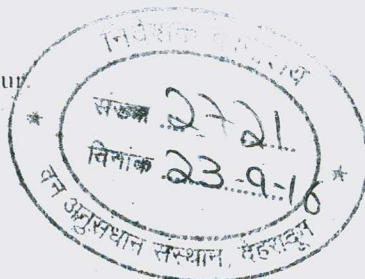 ur.
निदेशक कार्यालय
संख्या 2721
दिनांक 23-9-16
वन अनुसंधान संस्थान, देहरादून